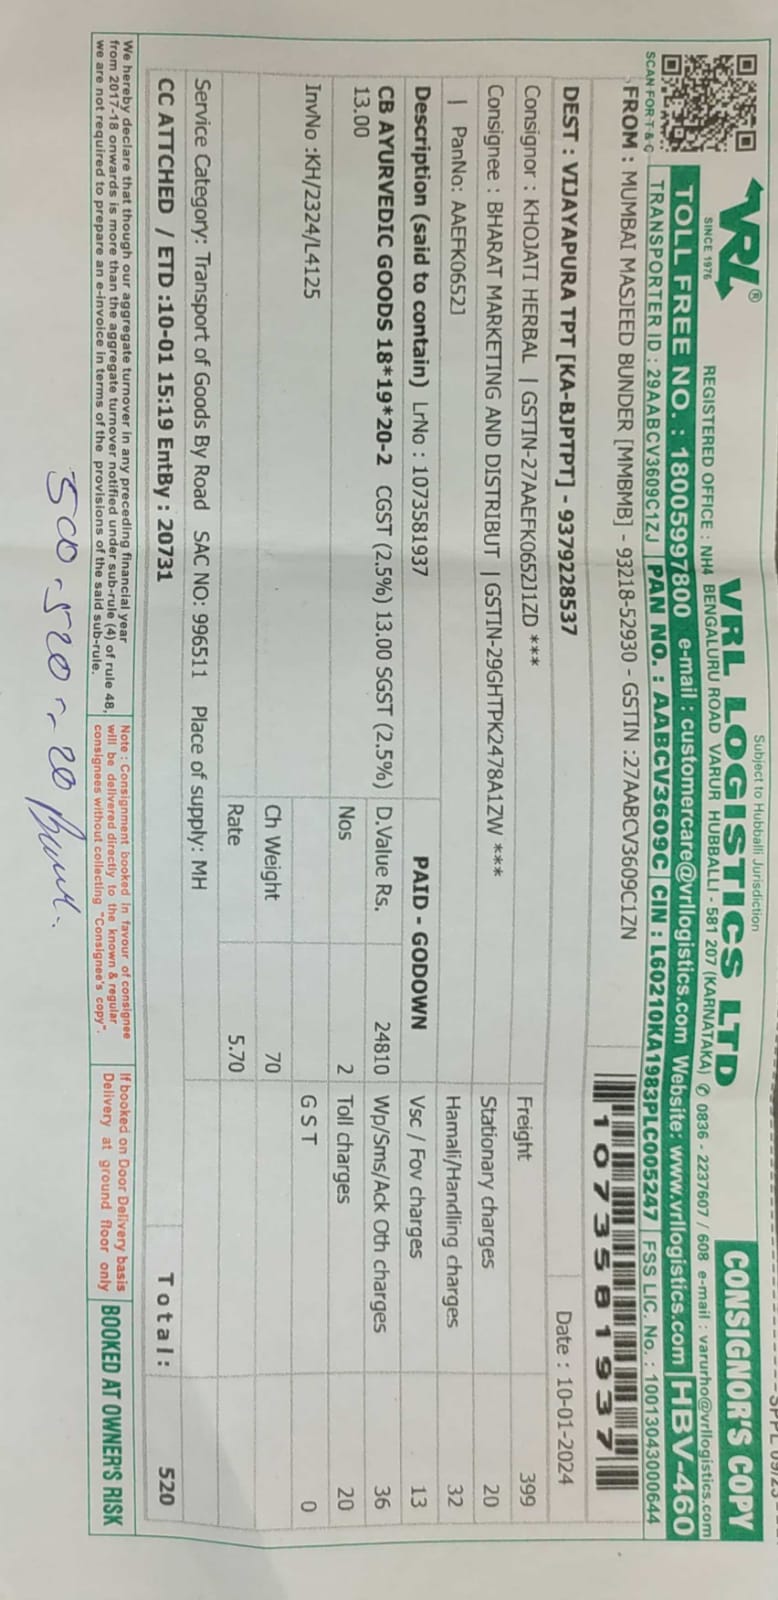 SPPL 09/23
Subject to Hubballi Jurisdiction
VRL ®
SINCE 1976
VRL LOGISTICS LTD
CONSIGNOR'S COPY
REGISTERED OFFICE : NH4 BENGALURU ROAD VARUR HUBBALLI - 581 207 (KARNATAKA) ✆ 0836 - 2237607 / 608 e-mail : varurho@vrllogistics.com
TOLL FREE NO. : 18005997800 e-mail : customercare@vrllogistics.com Website: www.vrllogistics.com HBV-460
TRANSPORTER ID : 29AABCV3609C1ZJ PAN NO. : AABCV3609C CIN : L60210KA1983PLC005247 FSS LIC. No. : 10013043000644
SCAN FOR T & C
FROM : MUMBAI MASJEED BUNDER [MMBMB] - 93218-52930 - GSTIN :27AABCV3609C1ZN
1073581937
DEST : VIJAYAPURA TPT [KA-BJPTPT] - 9379228537
Date : 10-01-2024
Consignor : KHOJATI HERBAL | GSTIN-27AAEFK0652J1ZD ***
Freight 399
Consignee : BHARAT MARKETING AND DISTRIBUT | GSTIN-29GHTPK2478A1ZW ***
Stationary charges 20
| PanNo: AAEFK0652J
Hamali/Handling charges 32
Description (said to contain) LrNo : 1073581937
PAID - GODOWN
Vsc / Fov charges 13
CB AYURVEDIC GOODS 18*19*20-2 CGST (2.5%) 13.00 SGST (2.5%)
13.00
D.Value Rs. 24810
Wp/Sms/Ack Oth charges 36
Nos 2
Toll charges 20
InvNo :KH/2324/L4125
G S T 0
Ch Weight 70
Rate 5.70
Service Category: Transport of Goods By Road SAC NO: 996511 Place of supply: MH
CC ATTCHED / ETD :10-01 15:19 EntBy : 20731
Total: 520
We hereby declare that though our aggregate turnover in any preceding financial year
from 2017-18 onwards is more than the aggregate turnover notified under sub-rule (4) of rule 48,
we are not required to prepare an e-invoice in terms of the provisions of the said sub-rule.
Note : Consignment booked in favour of consignee
will be delivered directly to the known & regular
consignees without collecting "Consignee's copy".
If booked on Door Delivery basis
Delivery at ground floor only
BOOKED AT OWNER'S RISK
500 - 520 = 20